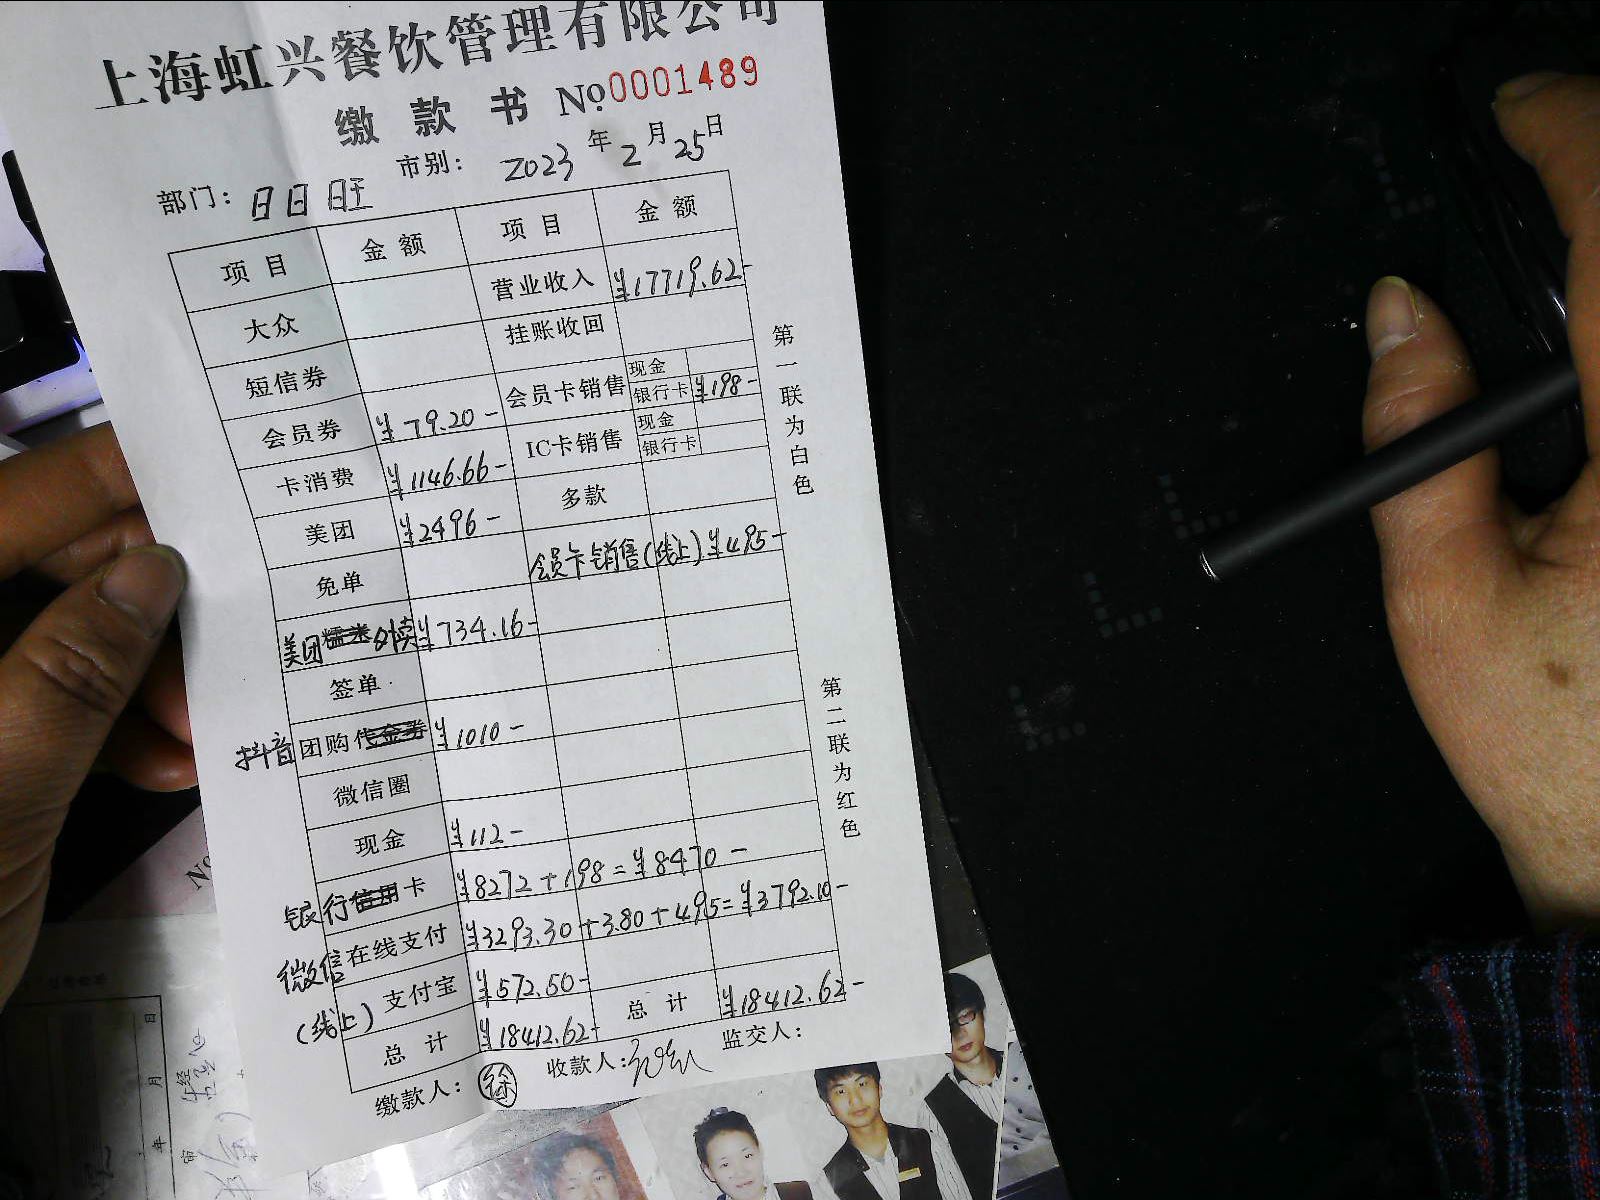 上海虹兴餐饮管理有限公司
缴款书 No 0001489
部门: 日日旺 市别: 2023年2月25日
项目 金额 项目 金额
大众 营业收入 ¥17719.62-
短信券 挂账收回
会员券 ¥79.20- 会员卡销售 现金
银行卡 ¥198-
卡消费 ¥1146.66- IC卡销售 现金
银行卡
美团 ¥2496- 多款
免单 会员卡销售(线上) ¥495-
美团 ¥734.16-
签单
抖音团购代金券 ¥1010-
微信圈
现金 ¥112-
银行信用卡 ¥8272+198=¥8470-
微信在线支付 ¥3293.30+3.80+495=¥3792.10-
(线上)支付宝 ¥572.50-
总计 ¥18412.62- 总计 ¥18412.62-
缴款人: 徐 收款人: 监交人:
第一联为白色
第二联为红色
No